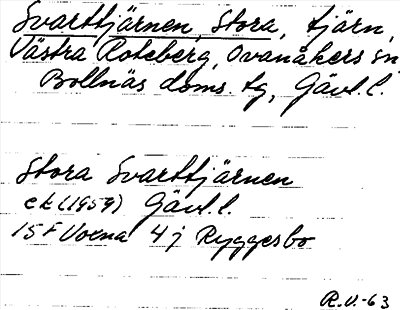 Svarttjärnen, Stora, tjärn,
Västra Roteberg, Ovanåkers sn
Bollnäs doms. tg, Gävl. l.
Stora Svarttjärnen
ek (1959) Gävl. l.
15 F Voxna 4 j Ryggesbo
R.V.-63